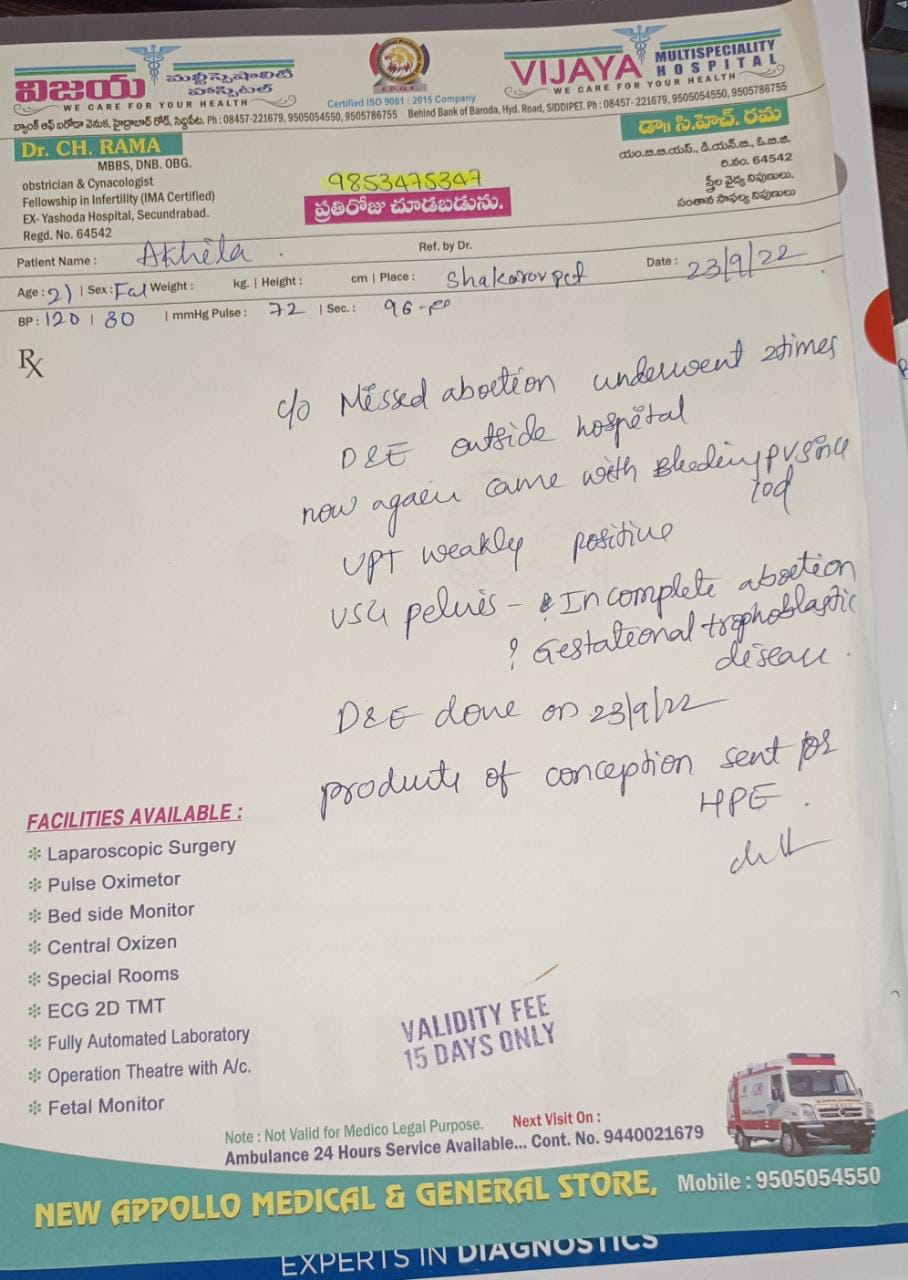 విజయ మల్టీస్పెషాలిటీ హాస్పిటల్
WE CARE FOR YOUR HEALTH
I.P.Q.C.
Certified ISO 9001 : 2015 Company
VIJAYA MULTISPECIALITY HOSPITAL
WE CARE FOR YOUR HEALTH
బ్యాంక్ ఆఫ్ బరోడా వెనుక, హైద్రాబాద్ రోడ్, సిద్దిపేట. Ph : 08457-221679, 9505054550, 9505786755
Behind Bank of Baroda, Hyd. Road, SIDDIPET. Ph : 08457- 221679, 9505054550, 9505786755
Dr. CH. RAMA
MBBS, DNB. OBG.
obstrician & Cynacologist
Fellowship in Infertility (IMA Certified)
EX- Yashoda Hospital, Secundrabad.
Regd. No. 64542
9853475347
ప్రతిరోజు చూడబడును.
డా॥ సి.హెచ్. రమ
యం.బి.బి.యస్., డి.యన్.బి., ఓ.బి.జి.
రి.నం. 64542
స్త్రీల వైద్య నిపుణులు,
సంతాన సాఫల్య నిపుణులు
Patient Name : Akhila . Ref. by Dr. Date : 23/9/22
Age : 21 | Sex : Fal Weight : kg. | Height : cm | Place :
BP : 120 | 80 | mmHg Pulse : 72 | Sec. :
Rx
c/o Missed abortion underwent 2times
D&E outside hospital
now again came with Bleeding PV since
10d
UPT weakly positive
USG pelvis - Incomplete abortion
? Gestational trophoblastic
disease .
D&E done on 23/9/22
products of conception sent for
HPE .
FACILITIES AVAILABLE :
❇ Laparoscopic Surgery
❇ Pulse Oximetor
❇ Bed side Monitor
❇ Central Oxizen
❇ Special Rooms
❇ ECG 2D TMT
❇ Fully Automated Laboratory
❇ Operation Theatre with A/c.
❇ Fetal Monitor
VALIDITY FEE
15 DAYS ONLY
Note : Not Valid for Medico Legal Purpose. Next Visit On :
Ambulance 24 Hours Service Available... Cont. No. 9440021679
NEW APPOLLO MEDICAL & GENERAL STORE, Mobile : 9505054550
EXPERTS IN DIAGNOSTICS